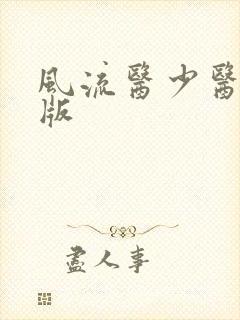 風流醫少醫
版
盡人事